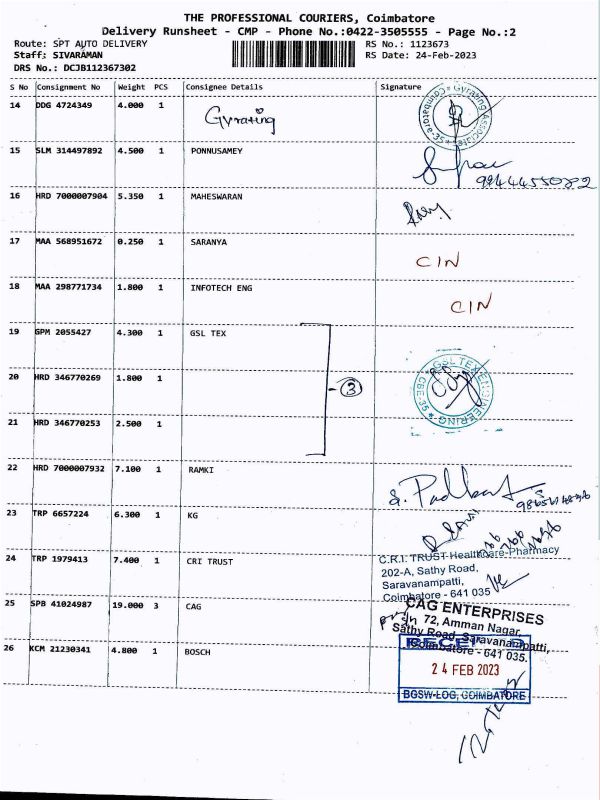 THE PROFESSIONAL COURIERS, Coimbatore
Delivery Runsheet - CMP - Phone No.:0422-3505555 - Page No.:2
Route: SPT AUTO DELIVERY RS No.: 1123673
Staff: SIVARAMAN RS Date: 24-Feb-2023
DRS No.: DCJB112367302
S No Consignment No Weight PCS Consignee Details Signature
14 DDG 4724349 4.000 1 Gyrating
Gyrating Associates Coimbatore-35
15 SLM 314497892 4.500 1 PONNUSAMEY
9944455082
16 HRD 7000007904 5.350 1 MAHESWARAN
17 MAA 568951672 0.250 1 SARANYA CIN
18 MAA 298771734 1.800 1 INFOTECH ENG CIN
19 GPM 2055427 4.300 1 GSL TEX
GSL TEX ENGINEERING CBE-35
20 HRD 346770269 1.800 1 3
21 HRD 346770253 2.500 1
22 HRD 7000007932 7.100 1 RAMKI
23 TRP 6657224 6.300 1 KG
24 TRP 1979413 7.400 1 CRI TRUST
C.R.I. TRUST-Healthcare-Pharmacy
202-A, Sathy Road,
Saravanampatti,
Coimbatore - 641 035
25 SPB 41024987 19.000 3 CAG
CAG ENTERPRISES
72, Amman Nagar,
Sathy Road, Saravanampatti,
Coimbatore - 641 035.
26 KCM 21230341 4.800 1 BOSCH
24 FEB 2023
BGSW-LOG, COIMBATORE